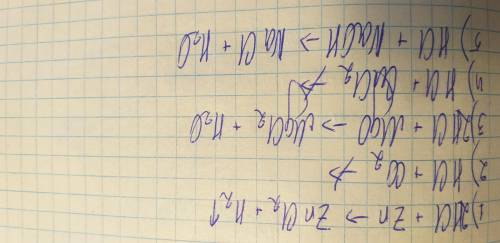 1) 2HCl + Zn → ZnCl₂ + H₂↑
2) HCl + O₂ ↛
3) 2HCl + MgO → MgCl₂ + H₂O
4) HCl + CaCl₂ ↛
5) HCl + NaOH → NaCl + H₂O